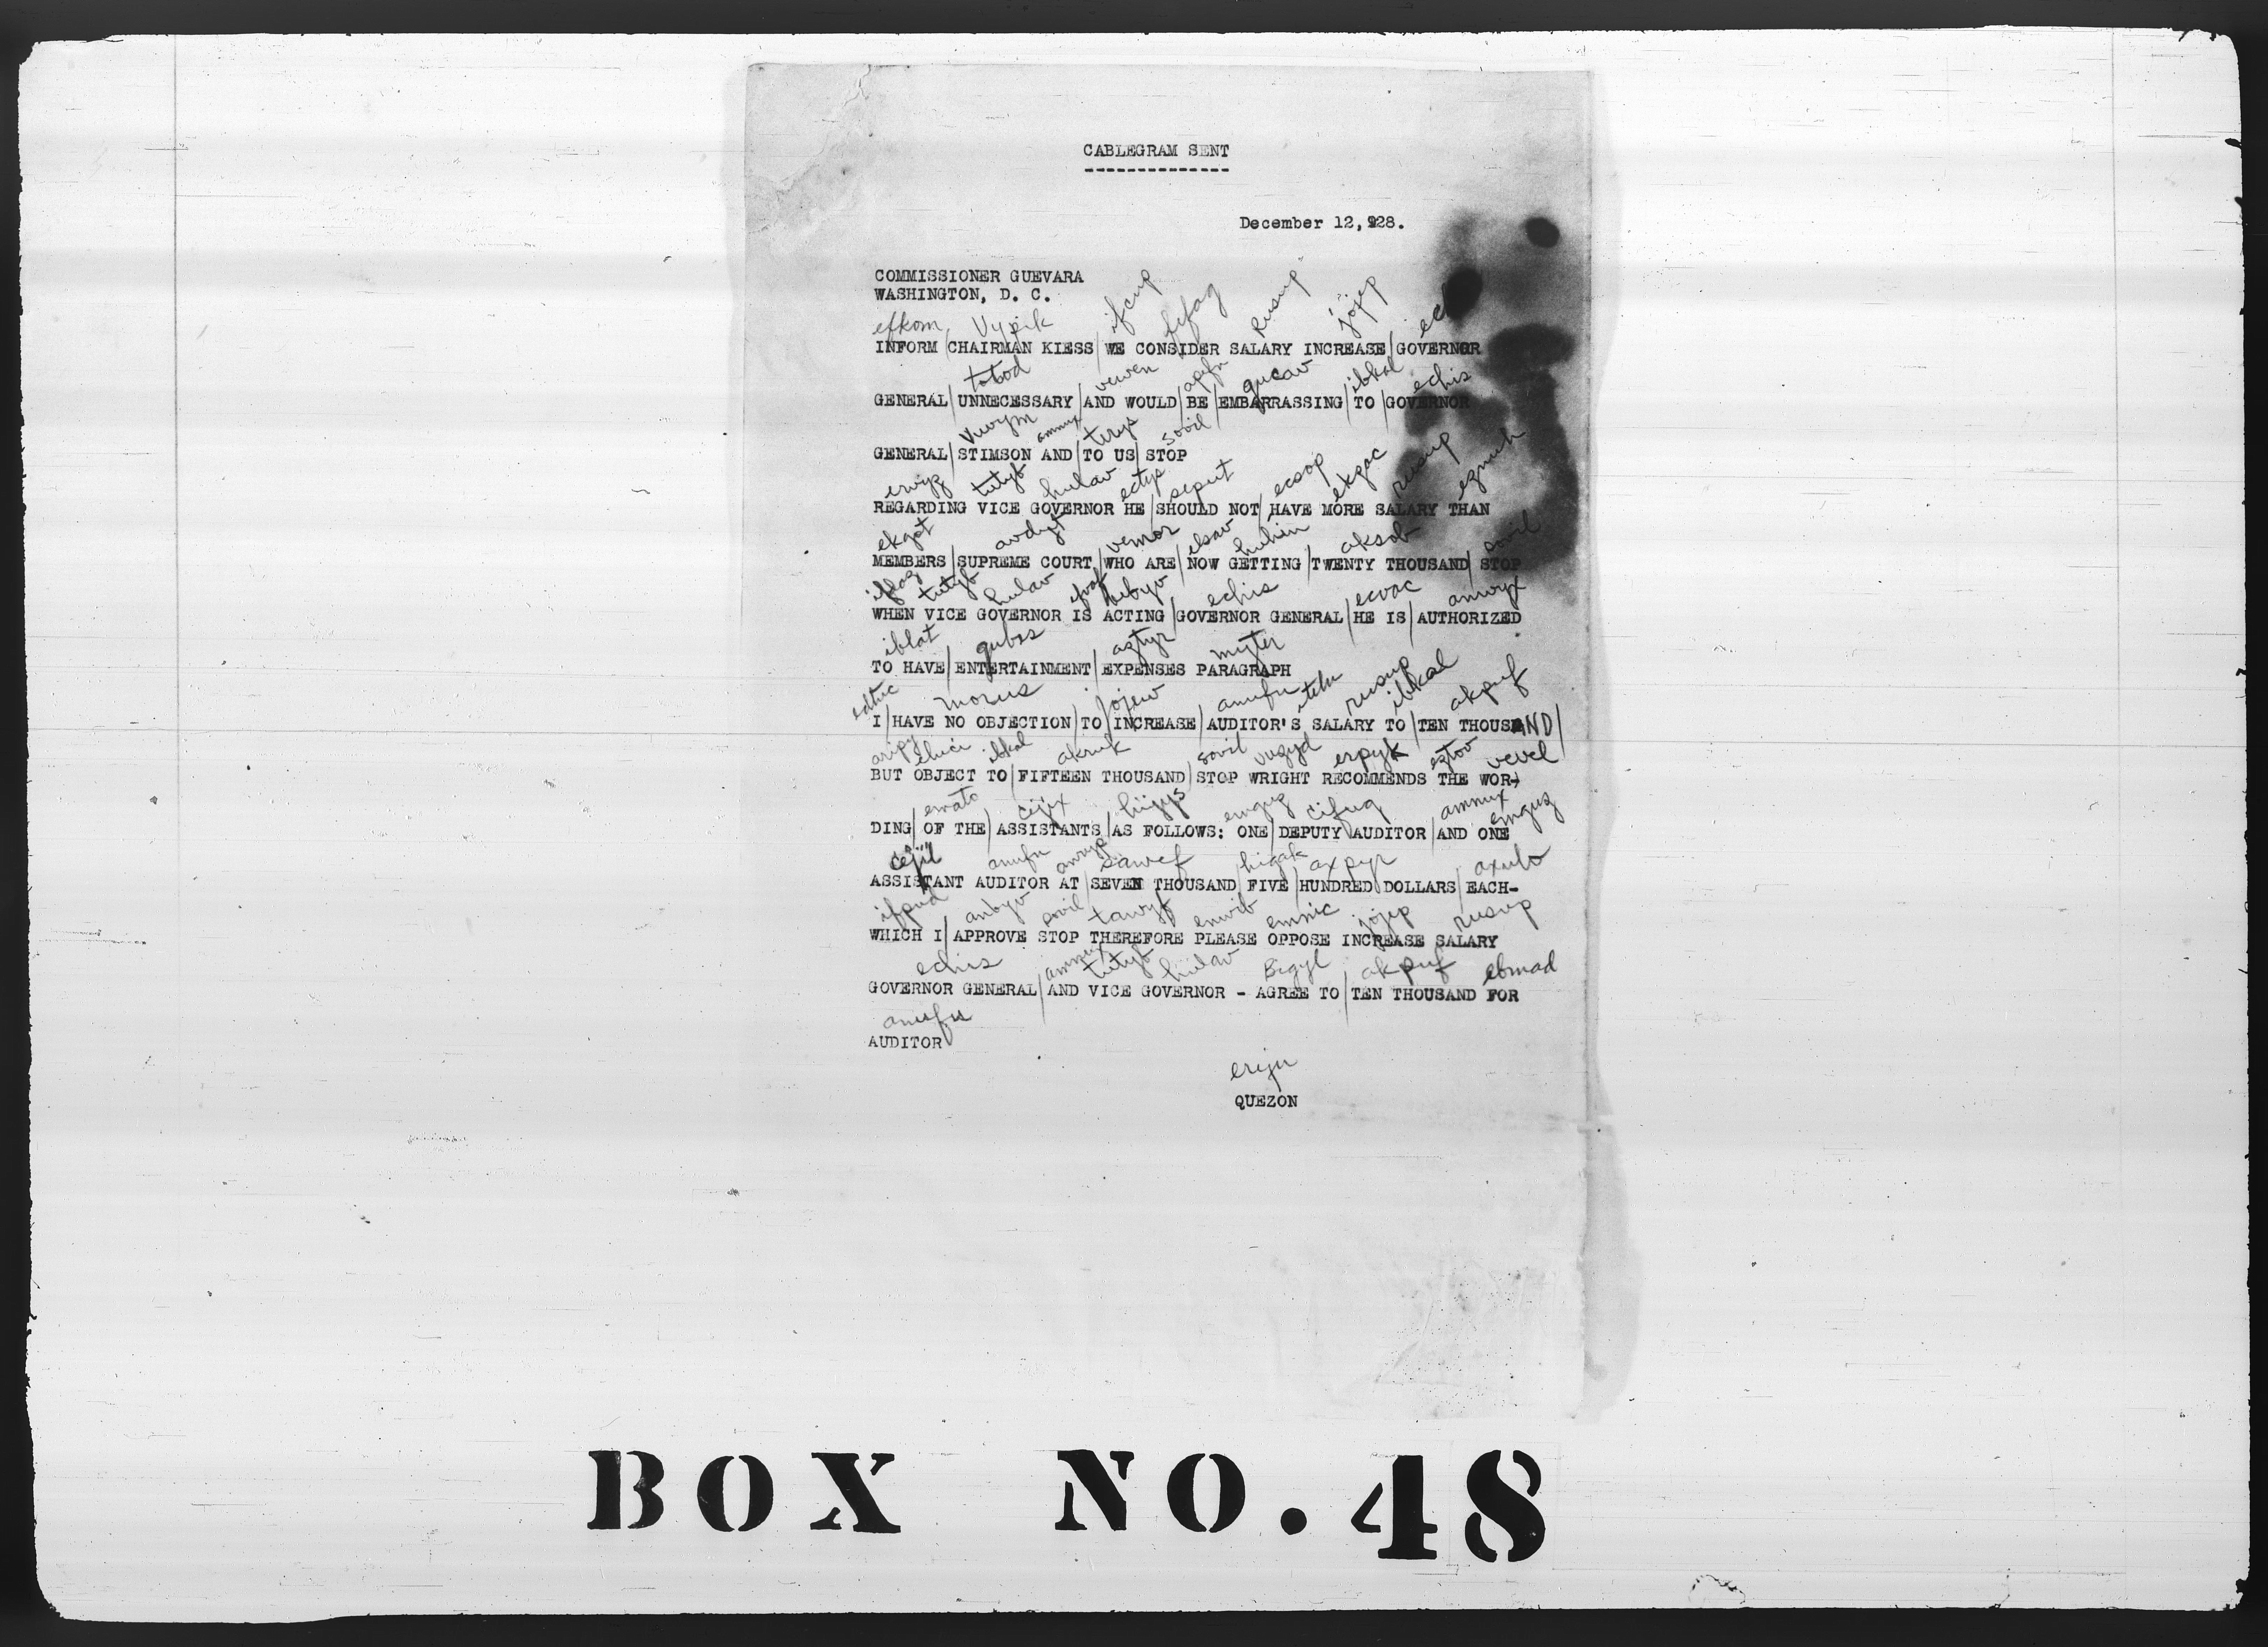 CABLEGRAM SENT
December 12, 928.
COMMISSIONER GUEVARA
WASHINGTON, D. C.
efkom Vypik ifcup fifag rusup jojep
INFORM CHAIRMAN KIESS WE CONSIDER SALARY INCREASE GOVERNOR
totod vewen apfn gucav ibkal echis
GENERAL UNNECESSARY AND WOULD BE EMBARRASSING TO GOVERNOR
Vuvym ammux terys sovil
GENERAL STIMSON AND TO US STOP
erwyz tutyb hulav ectyp seput ecsop ekgac rusup egmuh
REGARDING VICE GOVERNOR HE SHOULD NOT HAVE MORE SALARY THAN
ekgot avdyt vemor elsav huhin aksob sovil
MEMBERS SUPREME COURT WHO ARE NOW GETTING TWENTY THOUSAND STOP
tutyb hulav echis ecvac anwyx
WHEN VICE GOVERNOR IS ACTING GOVERNOR GENERAL HE IS AUTHORIZED
iblat qubas aztyr myter
TO HAVE ENTERTAINMENT EXPENSES PARAGRAPH
edtuc morus jojew anufu rusup ibkal akpuf
I HAVE NO OBJECTION TO INCREASE AUDITOR'S SALARY TO TEN THOUSAND
aripy eluci ibkal akruk sovil vuzyd erpyk eztov vevel
BUT OBJECT TO FIFTEEN THOUSAND STOP WRIGHT RECOMMENDS THE WOR-
ewato cijix hijys emguz cifug ammux emguz
DING OF THE ASSISTANTS AS FOLLOWS: ONE DEPUTY AUDITOR AND ONE
cejil anufu anryp sawef higak axpyr axulo
ASSISTANT AUDITOR AT SEVEN THOUSAND FIVE HUNDRED DOLLARS EACH-
ifpud anbyv sovil tawyf enwib emnic jojep rusup
WHICH I APPROVE STOP THEREFORE PLEASE OPPOSE INCREASE SALARY
echis ammux tutyb hulav Bigyl akpuf ebmad
GOVERNOR GENERAL AND VICE GOVERNOR - AGREE TO TEN THOUSAND FOR
anufu
AUDITOR
eriju
QUEZON
BOX NO. 48